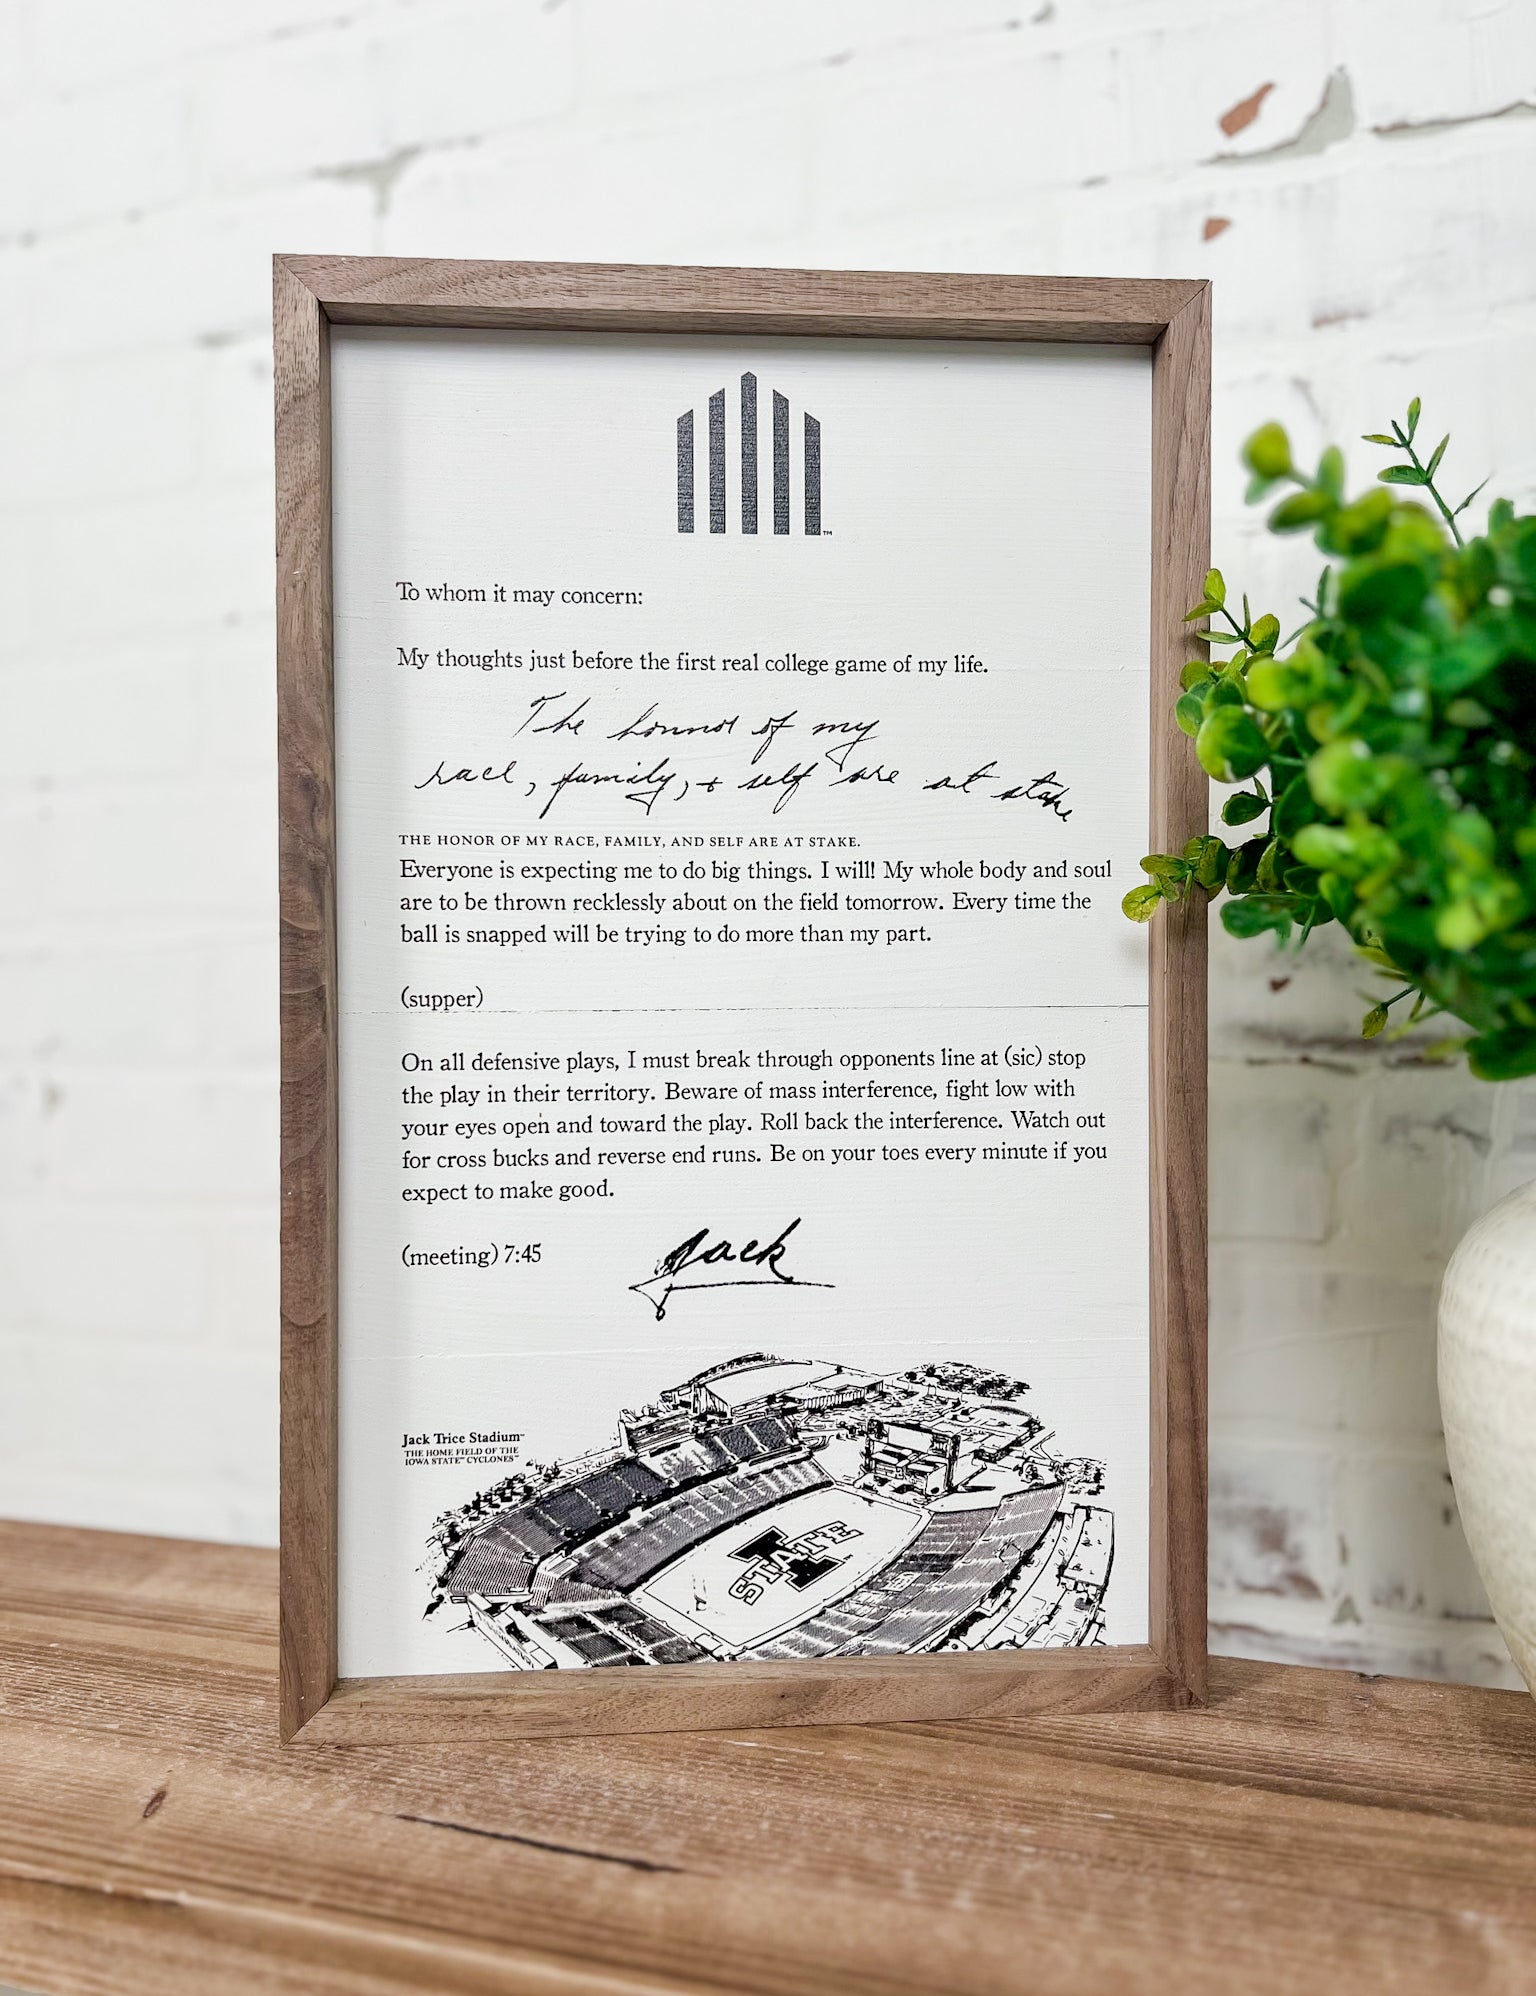 TM
To whom it may concern:
My thoughts just before the first real college game of my life.
The honor of my
race, family, + self are at stake
THE HONOR OF MY RACE, FAMILY, AND SELF ARE AT STAKE.
Everyone is expecting me to do big things. I will! My whole body and soul
are to be thrown recklessly about on the field tomorrow. Every time the
ball is snapped will be trying to do more than my part.
(supper)
On all defensive plays, I must break through opponents line at (sic) stop
the play in their territory. Beware of mass interference, fight low with
your eyes open and toward the play. Roll back the interference. Watch out
for cross bucks and reverse end runs. Be on your toes every minute if you
expect to make good.
(meeting) 7:45
Jack
Jack Trice Stadium™
THE HOME FIELD OF THE
IOWA STATE™ CYCLONES™
I
STATE